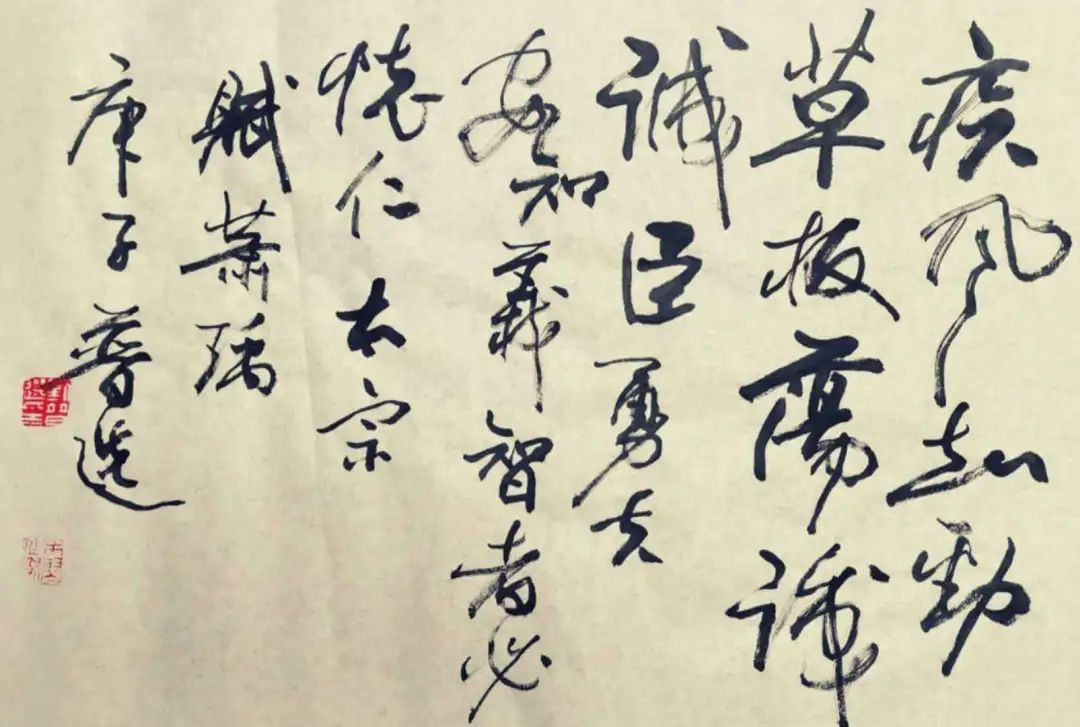 疾風知勁
草板蕩識
誠臣勇夫
安知義智者必
懷仁太宗
賦蕭瑀
庚子